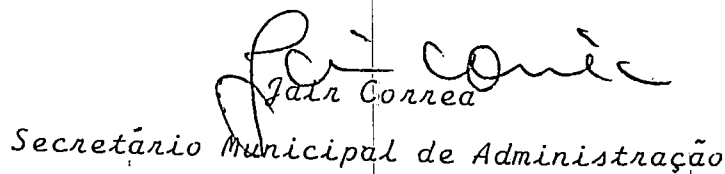 Jair Correa
Jair Correa
Secretário Municipal de Administração